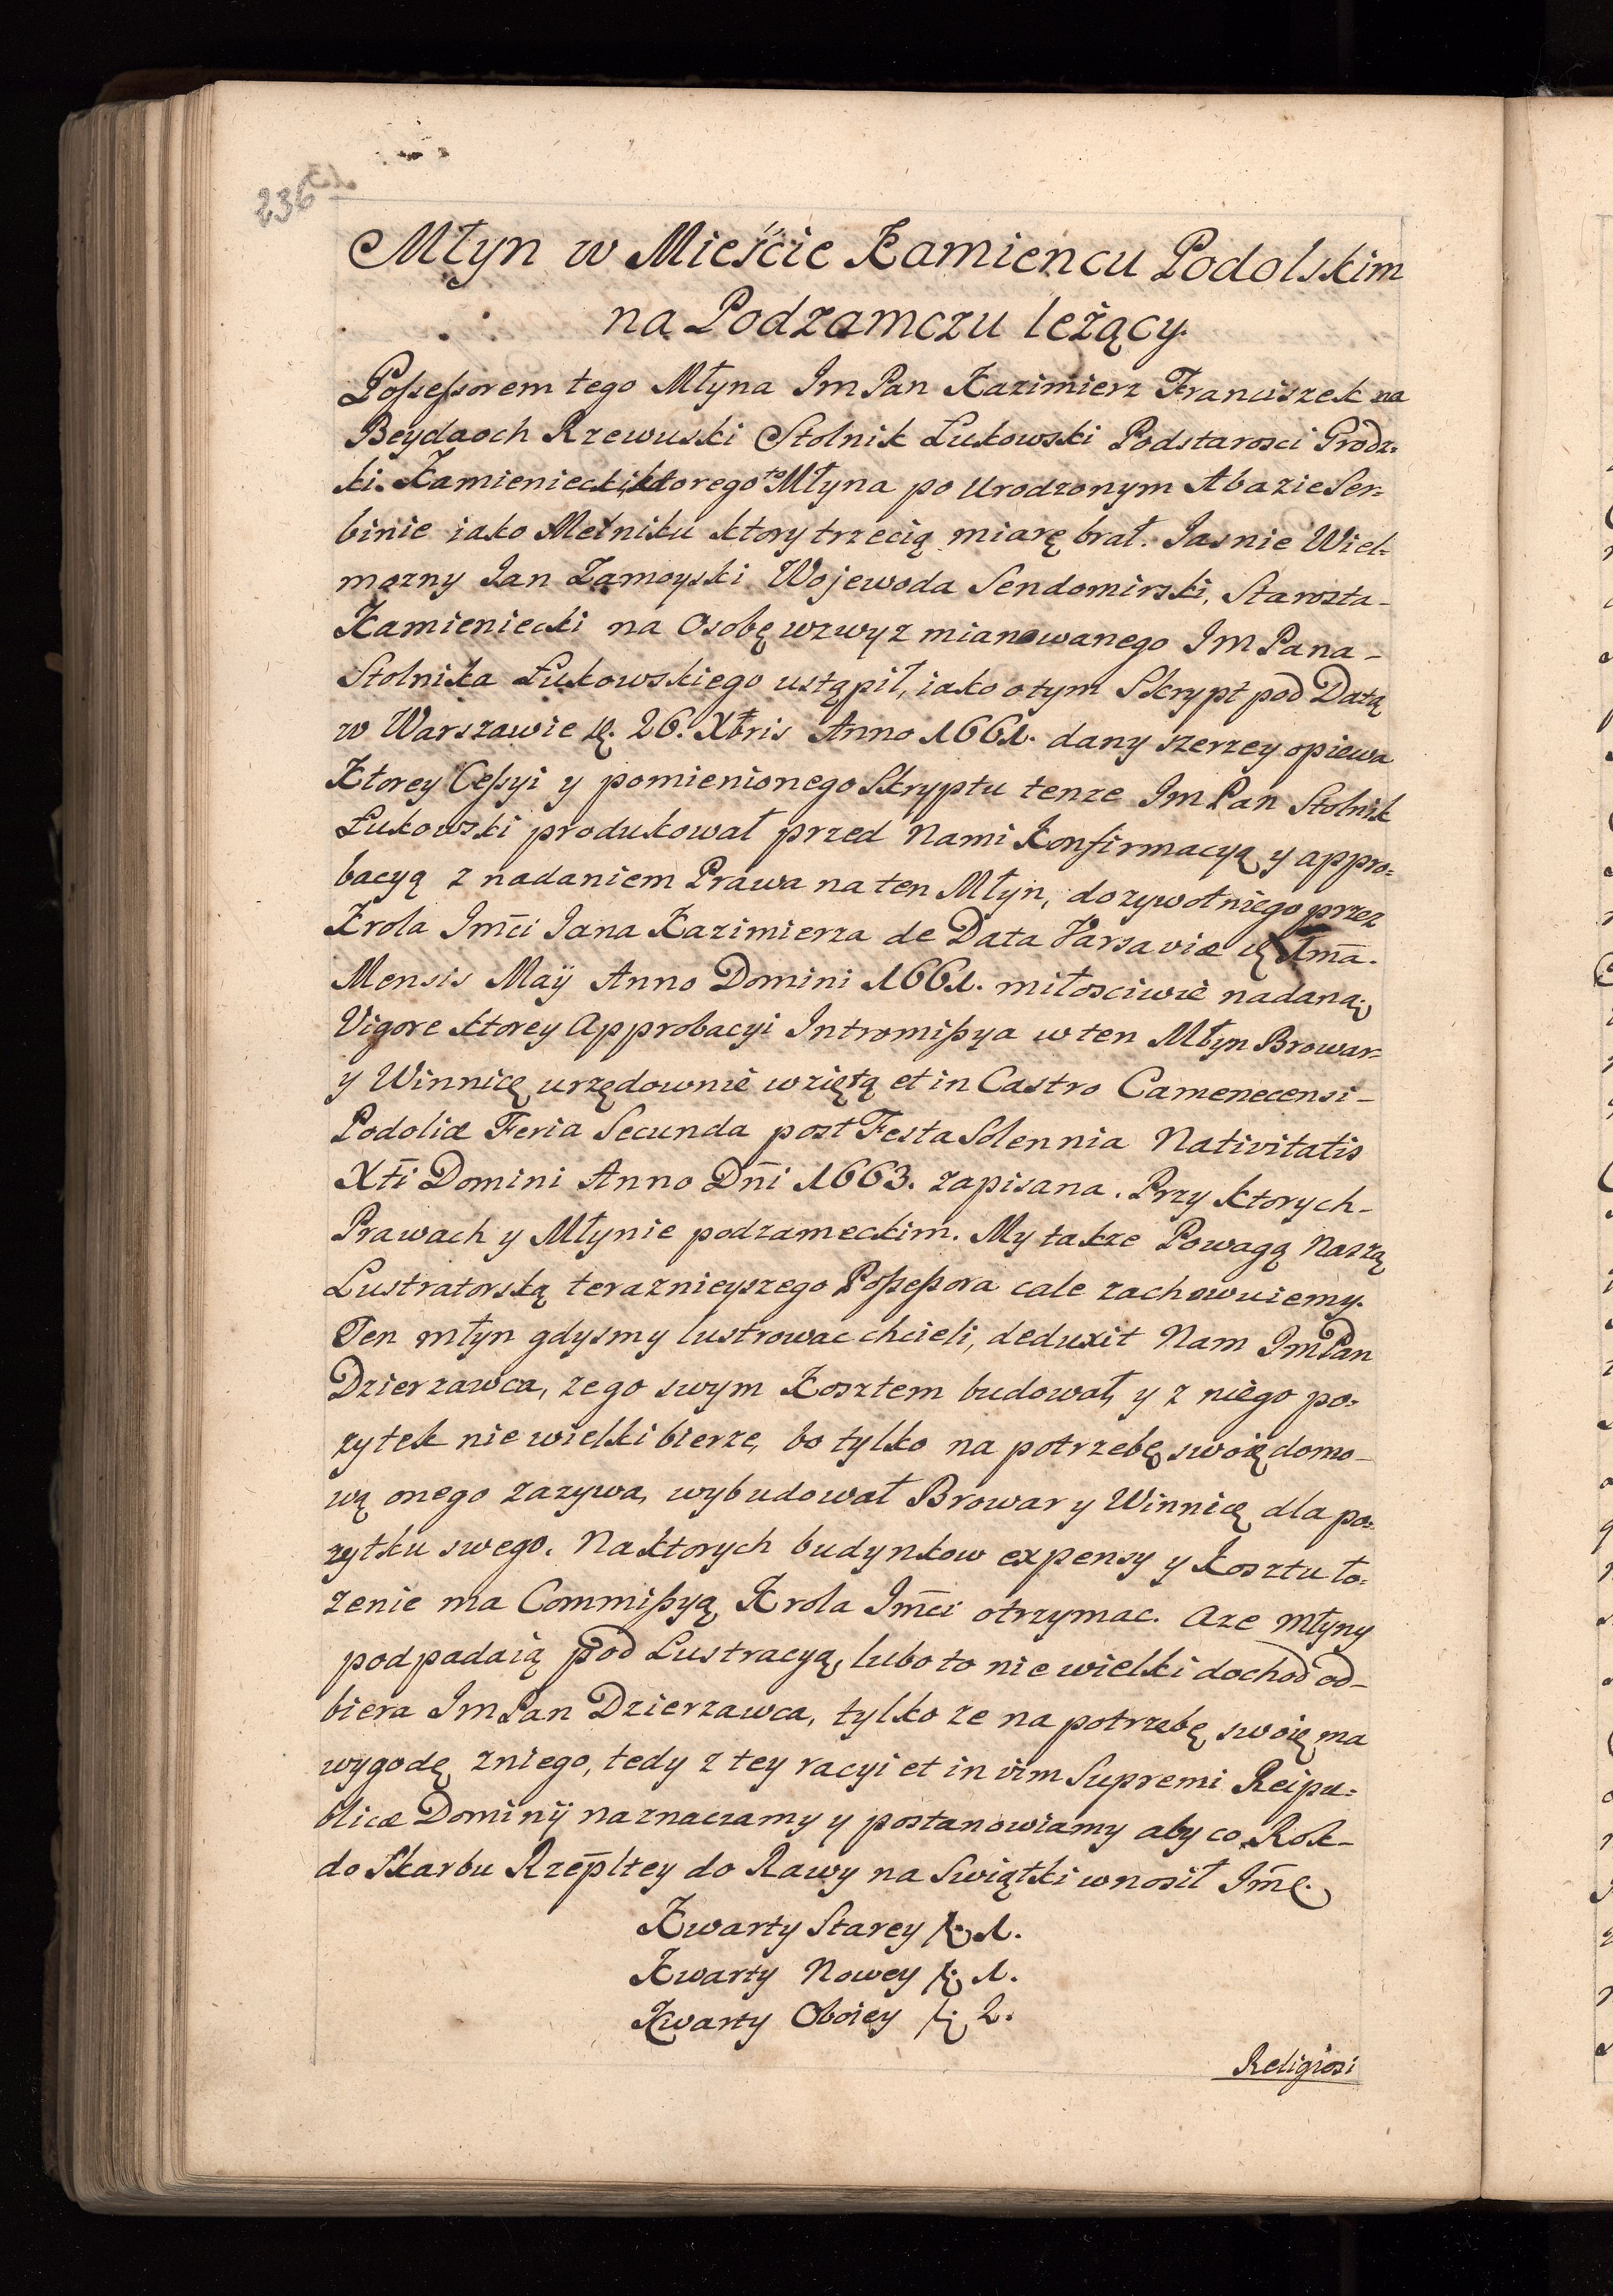 236
Młyn w Mieście Kamiencu Podolskim
na Podzamczu leżący.
Possessorem tego Młyna Im Pan Kazimierz Franciszek na
Beydaoch Rzewuski Stolnik Łukowski Podstarosci Grodz=
ki Kamieniecki, ktorego to Młyna po Urodzonym Abazie Ser=
binie iako Melniku ktory trzecią miarę brał. Jasnie Wiel=
mozny Jan Zamoyski Wojewoda Sendomirski, Starosta –
Kamieniecki na Osobę wzwyz mianowanego Im Pana –
Stolnika Łukowskiego ustąpił, iako o tym Skrypt pod Datą
w Warszawie d. 26. Xbris Anno 1661. dany szerzey opiewa
Ktorey Cessyi y pomienionego Skryptu tenze Im Pan Stolnik
Łukowski produkował przed Nami Konfirmacyą y appro=
bacyą z nadaniem Prawa na ten Młyn, dozywotniego przez
Krola Im̄ci Jana Kazimierza de Data Varsaviæ d. 1m̄a.
Mensis Maÿ Anno Domini 1661. miłosciwie nadaną;
Vigore ktorey Approbacyi Intromissya w ten Młyn Browar
y Winnicę urzędownie wziętą et in Castro Camenecensi –
Podoliæ Feria Secunda post Festa Solennia Nativitatis
Xti Domini Anno Dn̄i 1663. zapisana. Przy ktorych –
Prawach y Młynie podzameckim. My takze Powagą Naszą
Lustratorską teraznieyszego Possessora cale zachowuiemy.
Ten młyn gdysmy lustrowac chcieli, deduxit Nam Im Pan
Dzierzawca, ze go swym Kosztem budował, y z niego po=
zytek nie wielki bierze, bo tylko na potrzebę swoię domo –
wą onego zazywa, wybudował Browar y Winnicę dla po=
zytku swego. Na ktorych budynkow expensy y Kosztu ło=
zenie ma Commissyą Krola Im̄ci otrzymac. A ze młyny
podpadaią pod Lustracyą, lubo to nie wielki dochod od –
biera Im Pan Dzierzawca, tylko ze na potrzebę swoię ma
wygodę z niego, tedy z tey racyi et in vim Supremi Reipu=
blicæ Dominÿ naznaczamy y postanowiamy aby co Rok –
do Skarbu Rzēpltey do Rawy na Swiątki wnosił Im̄c.
Kwarty Starey f. 1.
Kwarty Nowey f. 1.
Kwarty Oboiey f. 2.
Religiosi